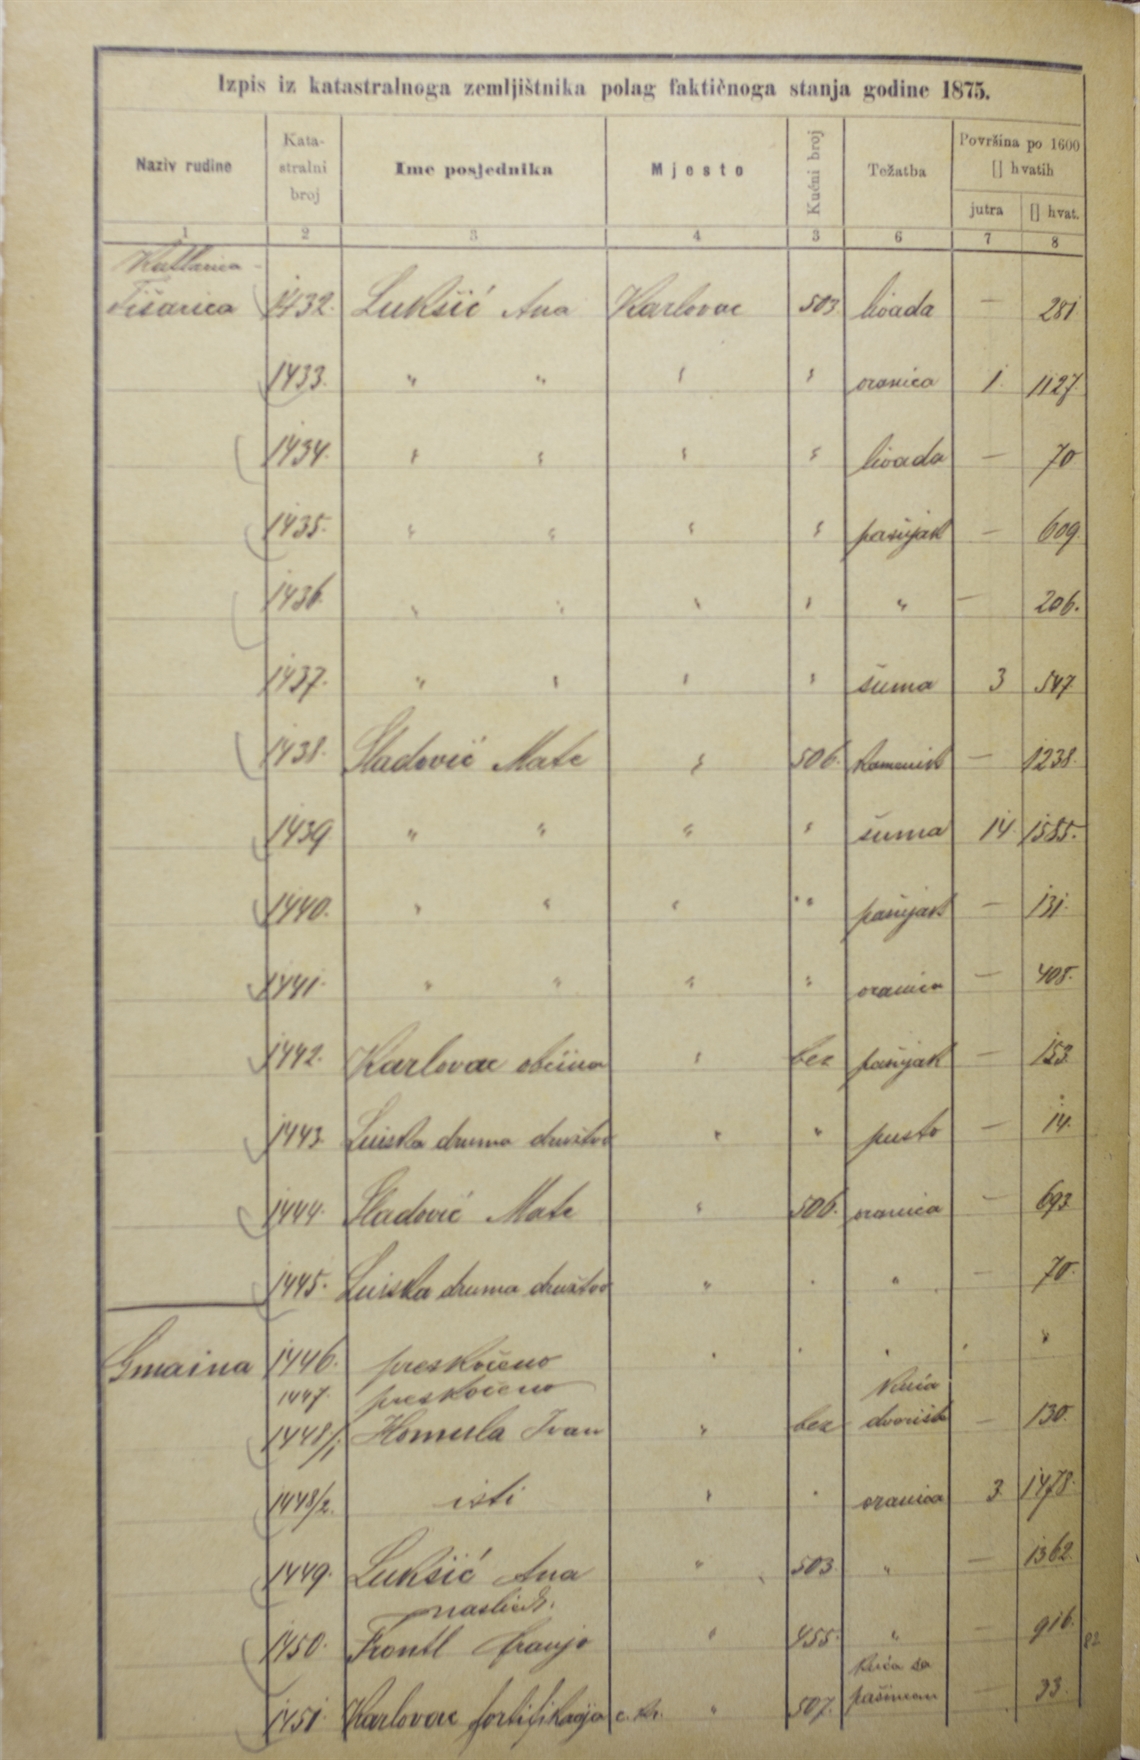 Izpis iz katastralnoga zemljištnika polag faktičnoga stanja godine 1875.
Naziv rudine Katastralni broj Ime posjednika Mjesto Kućni broj Težatba Površina po 1600 [] hvatih
jutra [] hvat.
1 2 3 4 3 6 7 8
Tišarica 1432. Lukšić Ana Karlovac 503 livada — 281
1433. " " " " oranica 1. 1127.
1434. " " " " livada — 70
1435. " " " " pašnjak — 609
1436 " " " " " — 206.
1437. " " " " šuma 3 547
1438. Sladović Mate " 506. kamenik — 1238.
1439 " " " " šuma 14. 1585.
1440. " " " " pašnjak — 131.
1441. " " " " oranica — 408.
1442. Karlovac obćina " bez pašnjak — 153.
1443. Luiska druma družtvo " " pusto — 14.
1444. Sladović Mate " 506. oranica — 693
1445. Luiska druma družtvo " " " — 70.
Gmaina 1446. preskočeno " " " " "
1447. preskočeno
kuća
1448/1 Homula Ivan " bez dvorište — 130.
1448/2. isti " " oranica 3. 1478.
1449. Lukšić Ana " 503 " — 1362
nasliedn.
1450. Frontl Franjo " 455. " — 916.
82
kuća sa
1451. Karlovac fortifikacija c. kr. " 507. pašincem — 33.